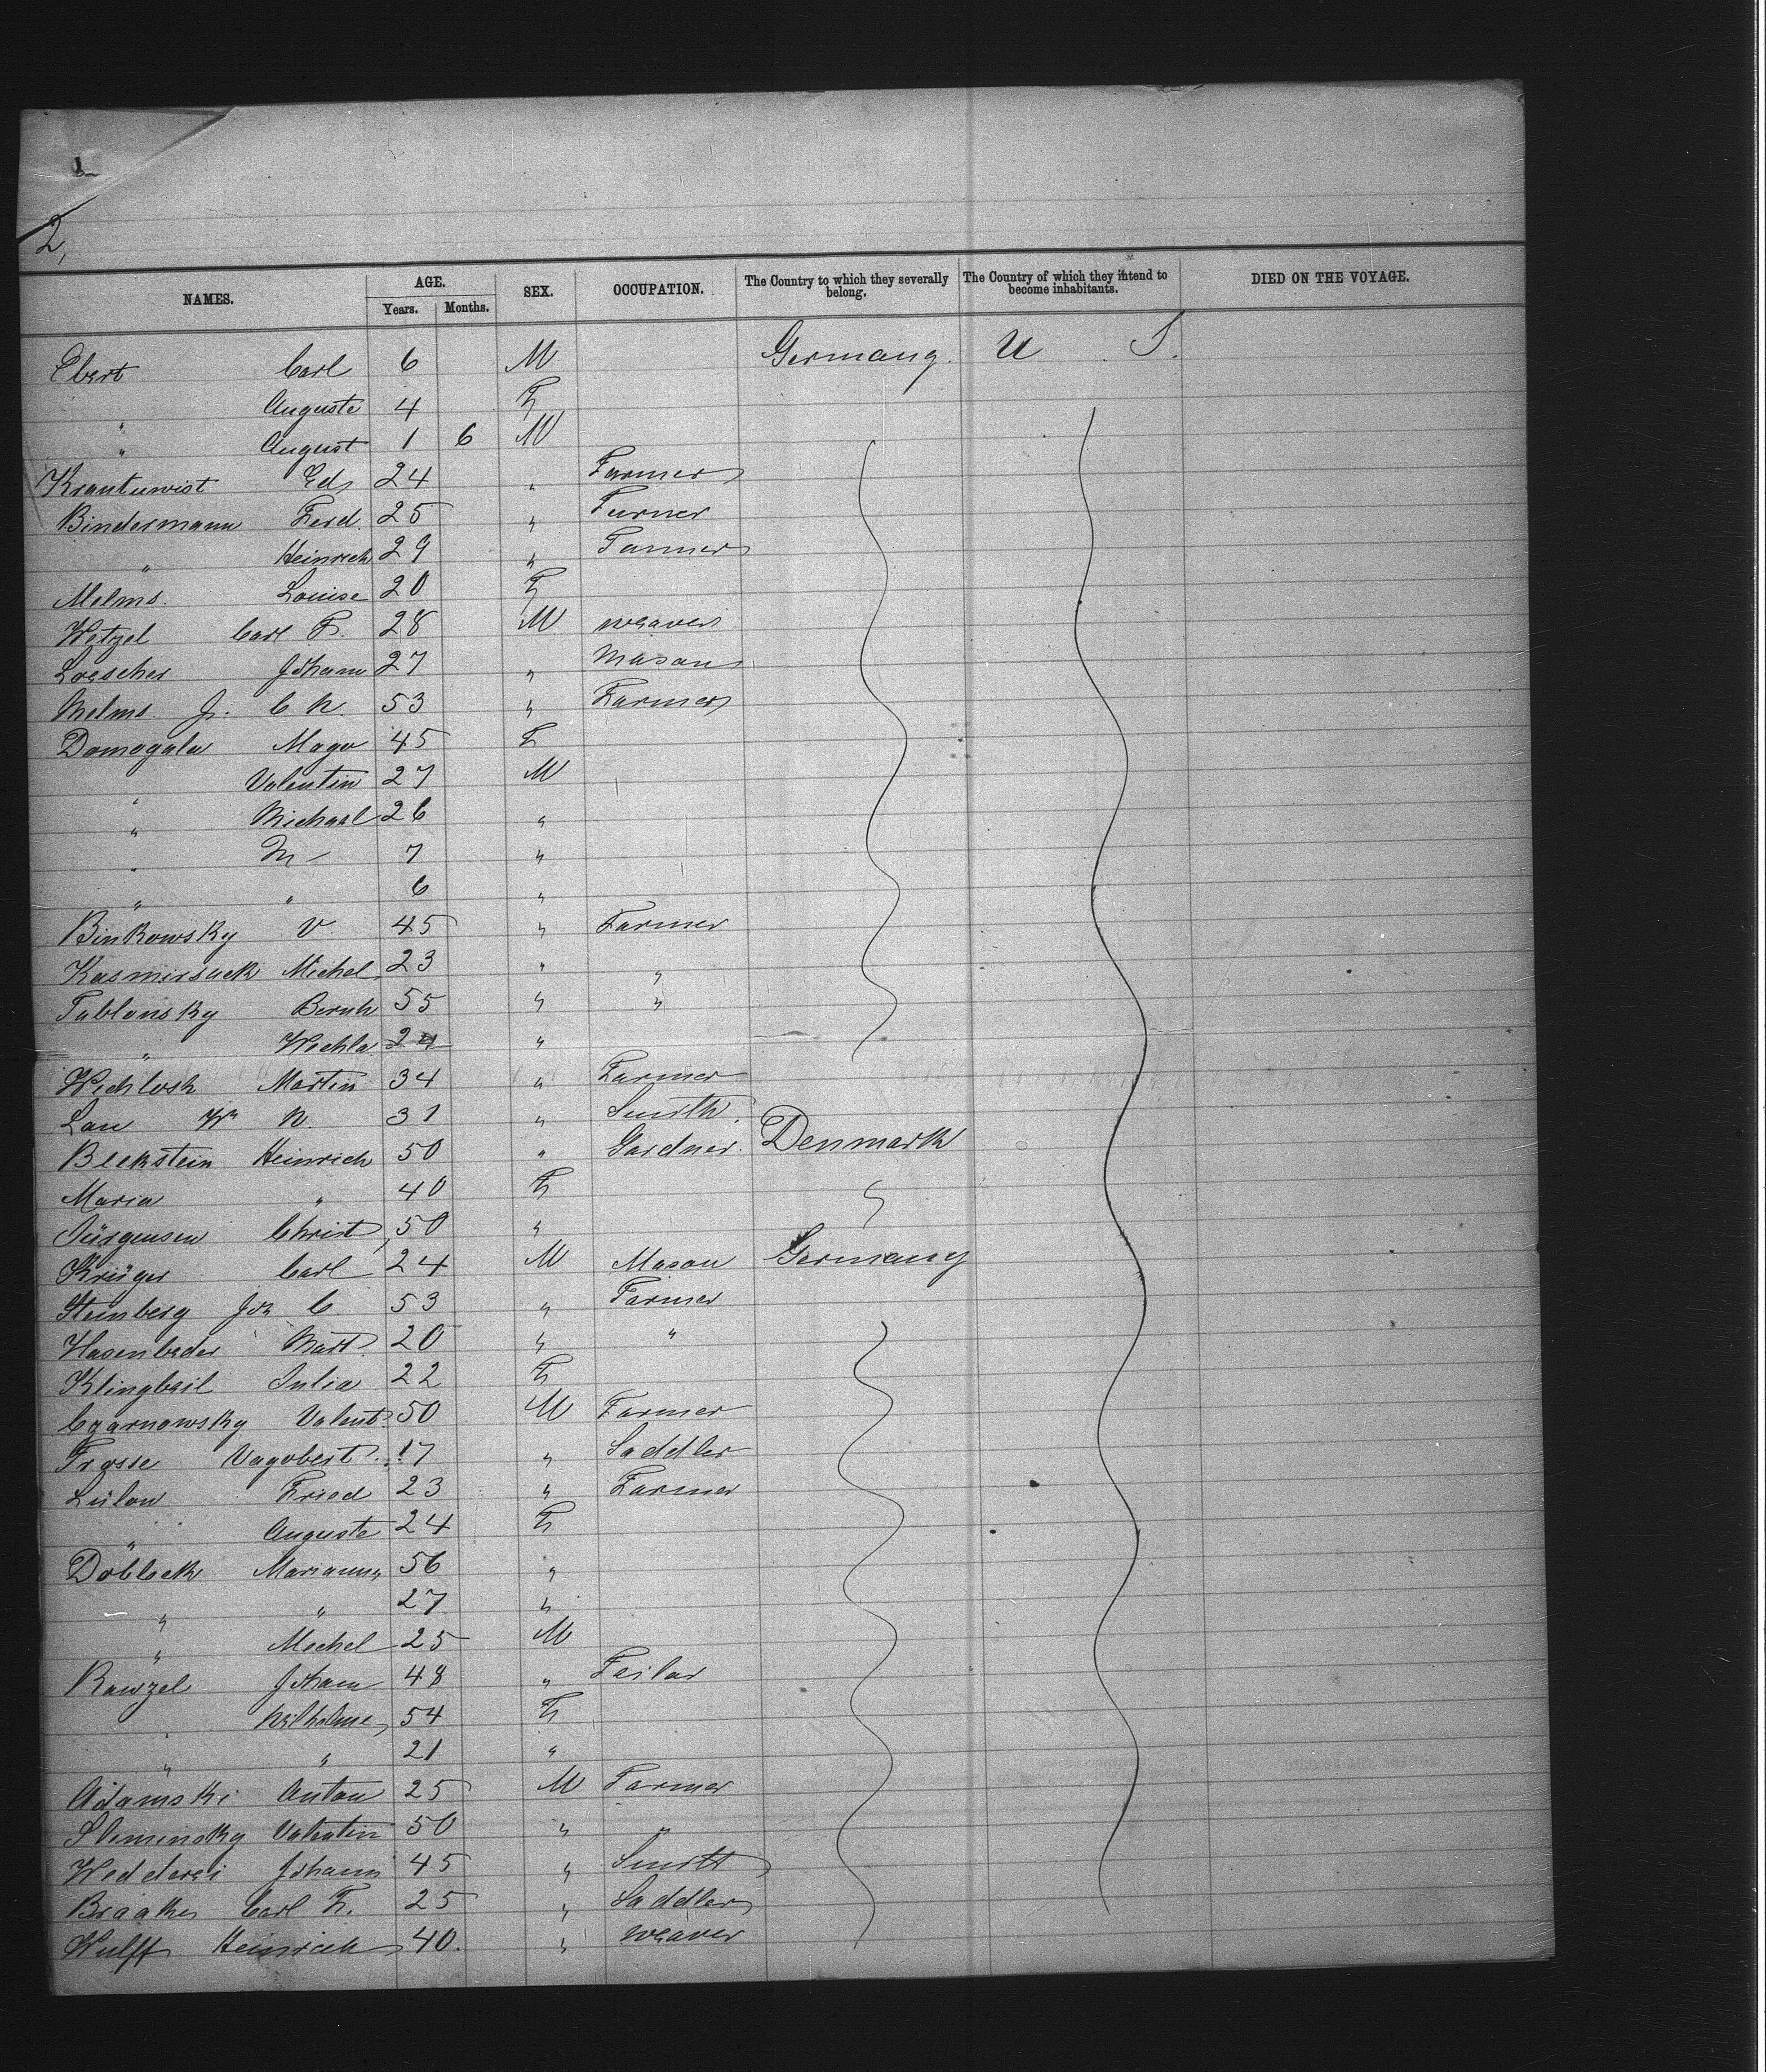 2,
NAMES. AGE. Years. Months. SEX. OCCUPATION. The Country to which they severally belong. The Country of which they intend to become inhabitants. DIED ON THE VOYAGE.
Ebert Carl 6 M Germany. U S.
Auguste 4 F
" August 1 6 M
Krantuwist Ed 24 " Farmer
Bindermann Ferd. 25 " Turner
" Heinrich 29 " Farmer
Melms. Louise 20 F
Wetzel Carl F. 28 M weaver
Loescher Johann 27 " Mason
Melms J. C. N. 53 " Farmer
Domogala Mago 45 F
" Valentin 27 M
" Michael 26 "
" M 7 "
" " 6 "
Binkowsky V. 45 " Farmer
Kasmirsack Michel 23 " "
Tablonsky Bernh 55 " "
" Wechla 24 "
Wichlosh Martin 34 " Farmer
Lau Wm N. 31 " Smith
Beckstein Heinrich 50 " Gardner. Denmark
Maria " 40 F
Jürgensen Christ, 50 "
Krüger Carl 24 M Mason Germany
Steinberg Joh C. 53 " Farmer
Hasenbeder Mart. 20 " "
Klingbeil Julia 22 F
Czarnowsky Valent. 50 M Farmer
Frosse Dagobert 17 " Saddler
Lülow Fried 23 " Farmer
" Auguste 24 F
Dobleck Marianna 56 "
" " 27 "
" Mechel 25 M
Rawzel Johann 48 " Tailor
" Wilhelme, 54 F
" " 21 "
Adamski Anton 25 M Farmer
Sleminsky Valentin 50 " "
Wedderei Johann 45 " Smith
Braaker Carl F. 25 " Saddler
Wulff Heinrich 40. " weaver